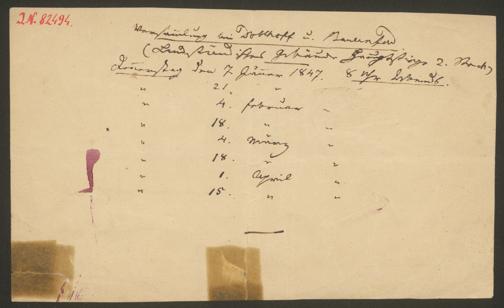 I.N. 82494.
Versammlung bei Doblhoff u. Bauernfeld
(Landständisches Gebäude Hauptstiege 2. Stock)
Donnerstag den 7. Jänner 1847. 8 Uhr Abends.
" 21. " "
" 4. Februar "
" 18. " "
" 4. März "
" 18. " "
" 1. April "
" 15. " "